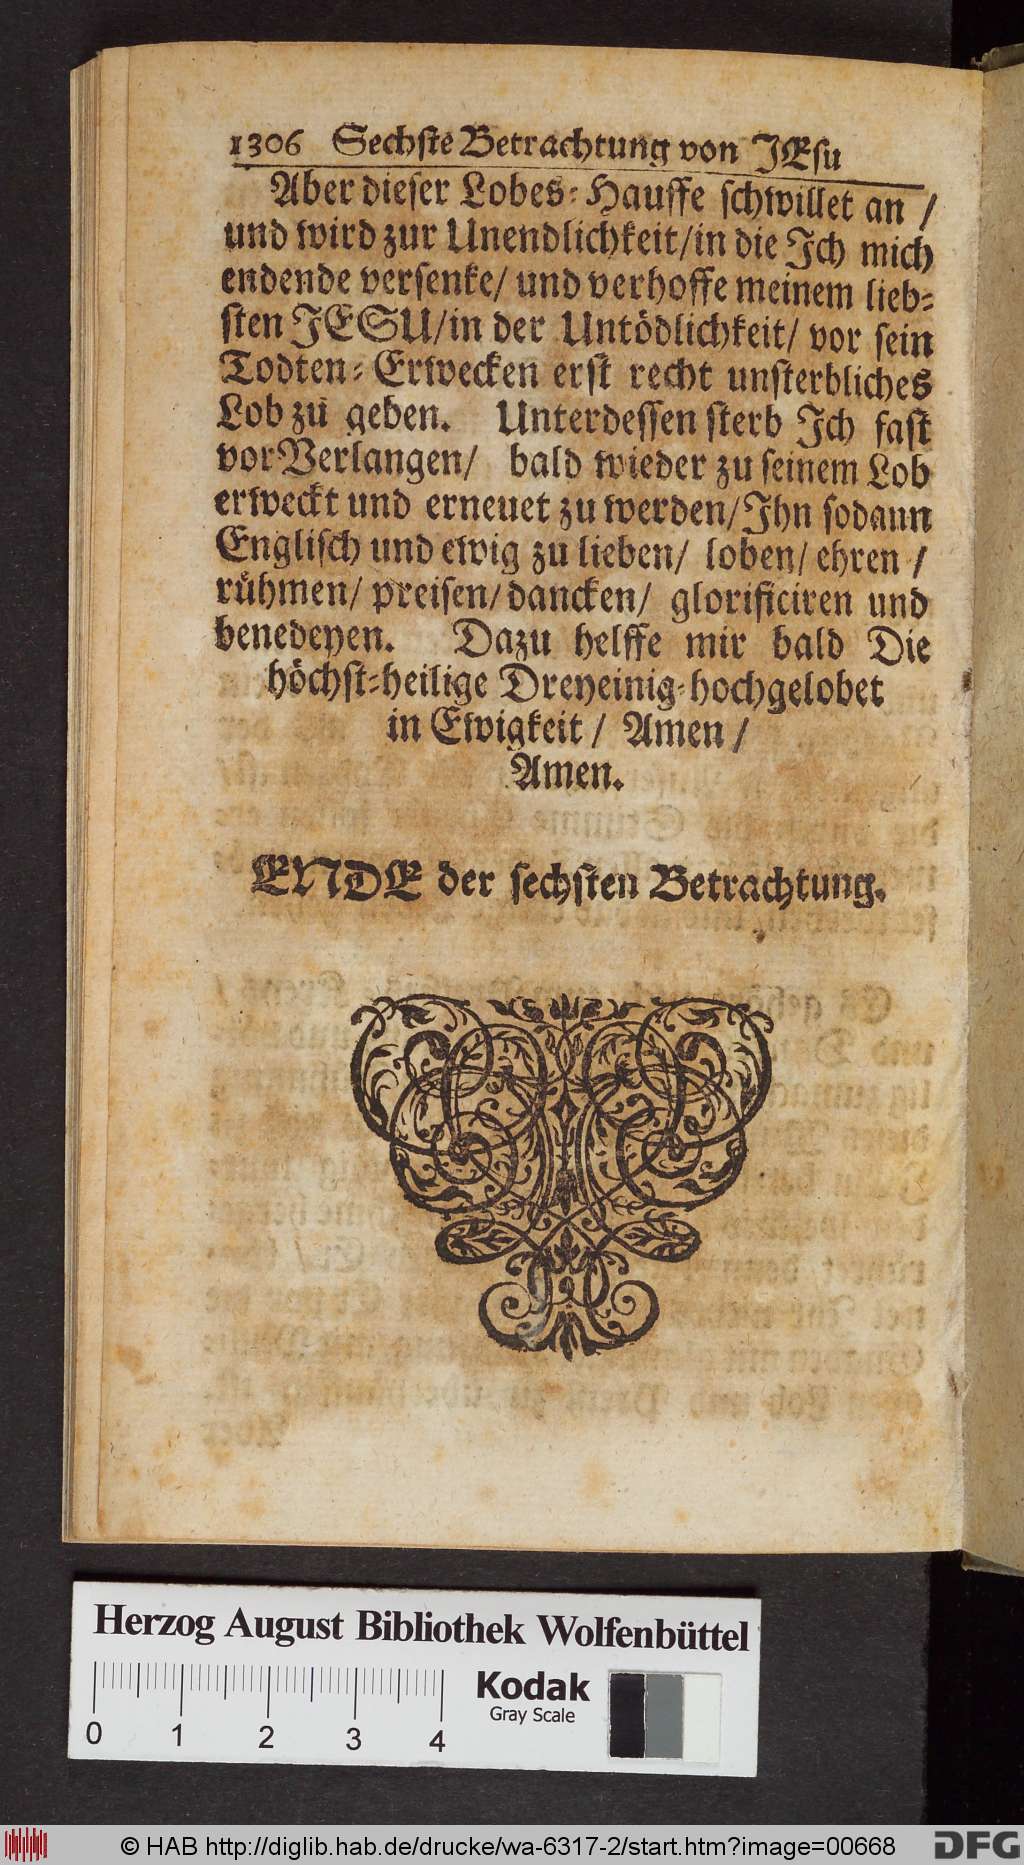 1306 Sechste Betrachtung von JEsu
Aber dieser Lobes-Hauffe schwillet an /
und wird zur Unendlichkeit/in die Jch mich
endende versenke/ und verhoffe meinem lieb-
sten JESU/in der Untödlichkeit/ vor sein
Todten-Erwecken erst recht unsterbliches
Lob zu geben. Unterdessen sterb Jch fast
vor Verlangen/ bald wieder zu seinem Lob
erweckt und erneuet zu werden/Jhn sodann
Englisch und ewig zu lieben/ loben/ ehren /
rühmen/ preisen/dancken/ glorificiren und
benedeyen. Dazu helffe mir bald Die
höchst-heilige Dreyeinig-hochgelobet
in Ewigkeit / Amen /
Amen.
ENDE der sechsten Betrachtung.
Herzog August Bibliothek Wolfenbüttel
Kodak
Gray Scale
0 1 2 3 4
© HAB http://diglib.hab.de/drucke/wa-6317-2/start.htm?image=00668
DFG